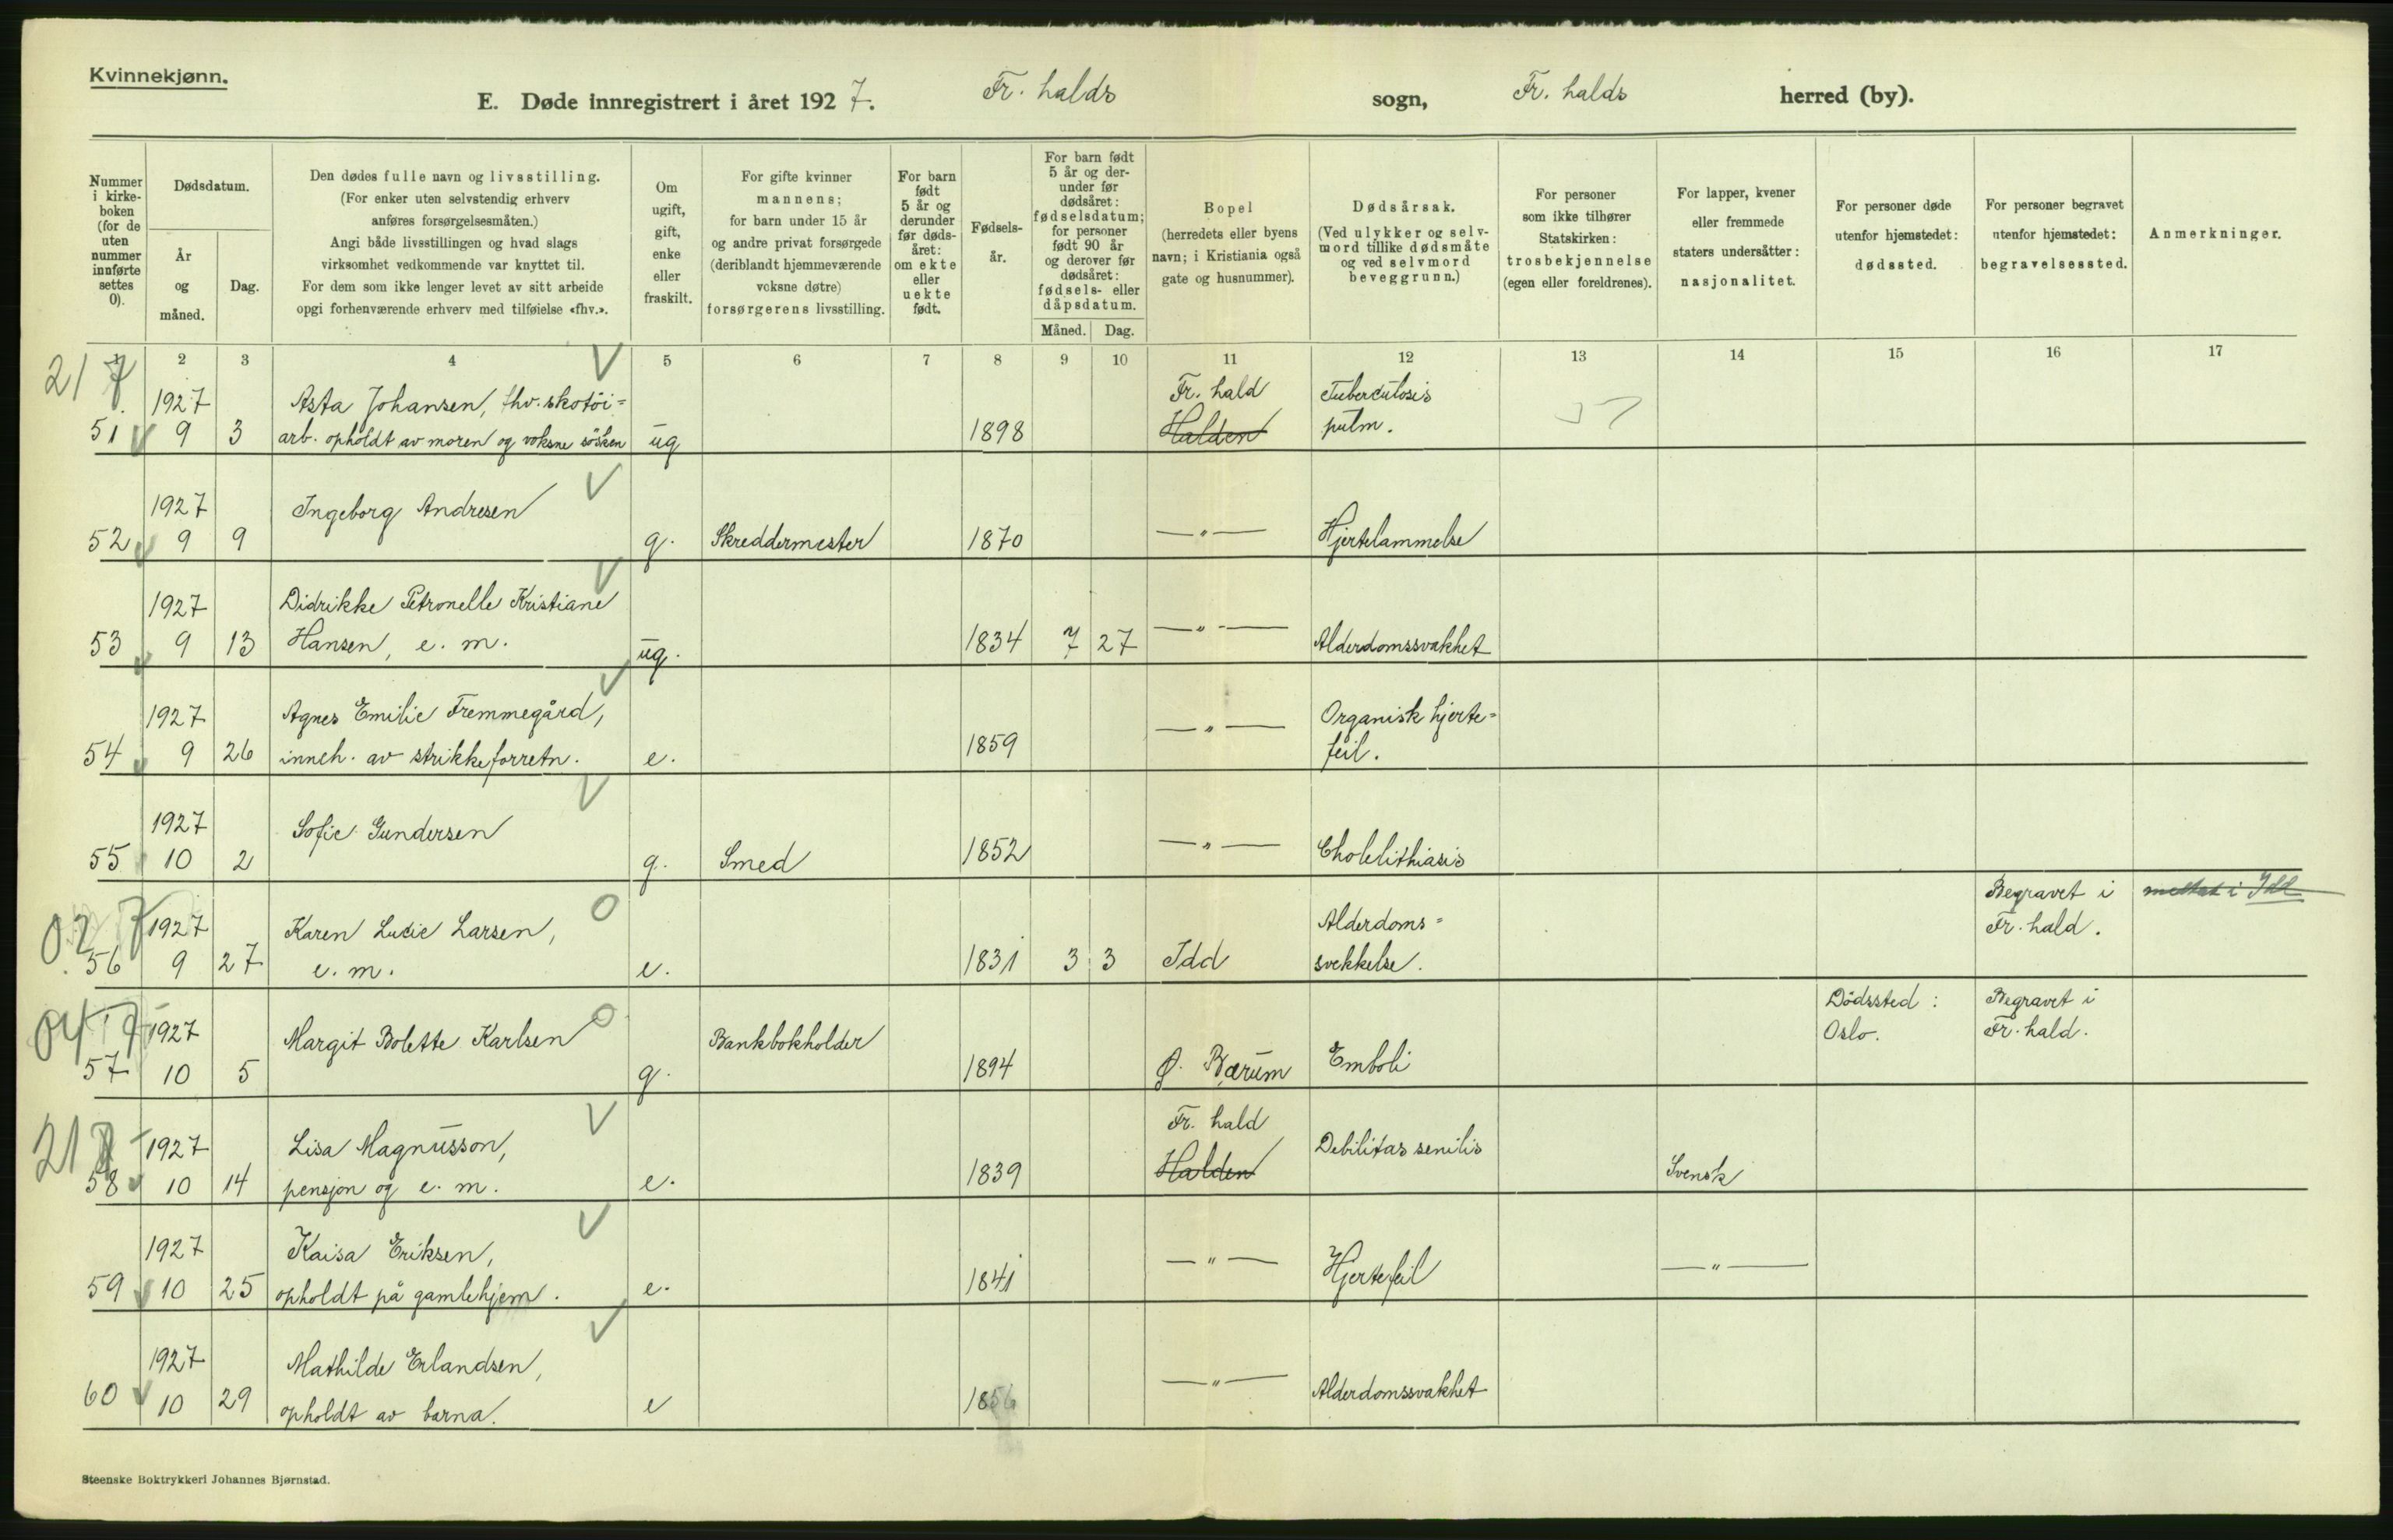 Kvinnekjønn.
E. Døde innregistrert i året 1927. Fr. halds sogn, Fr. halds herred (by).
Nummer i kirke-boken (for de uten nummer innførte settes 0).
Dødsdatum.
År og måned.
Dag.
Den dødes fulle navn og livsstilling.
(For enker uten selvstendig erhverv
anføres forsørgelsesmåten.)
Angi både livsstillingen og hvad slags
virksomhet vedkommende var knyttet til.
For dem som ikke lenger levet av sitt arbeide
opgi forhenværende erhverv med tilføielse «fhv.».
Om
ugift,
gift,
enke
eller
fraskilt.
For gifte kvinner
mannens;
for barn under 15 år
og andre privat forsørgede
(deriblandt hjemmeværende
voksne døtre)
forsørgerens livsstilling.
For barn
født
5 år og
derunder
før døds-
året:
om ekte
eller
uekte
født.
Fødsels-
år.
For barn født
5 år og der-
under før
dødsåret:
fødselsdatum;
for personer
født 90 år
og derover før
dødsåret:
fødsels- eller
dåpsdatum.
Måned. Dag.
Bopel
(herredets eller byens
navn; i Kristiania også
gate og husnummer).
Dødsårsak.
(Ved ulykker og selv-
mord tillike dødsmåte
og ved selvmord
beveggrunn.)
For personer
som ikke tilhører
Statskirken:
trosbekjennelse
(egen eller foreldrenes).
For lapper, kvener
eller fremmede
staters undersåtter:
nasjonalitet.
For personer døde
utenfor hjemstedet:
dødssted.
For personer begravet
utenfor hjemstedet:
begravelsessted.
Anmerkninger.
2 3 4 5 6 7 8 9 10 11 12 13 14 15 16 17
217
1927 Asta Johansen, fhv. skotöi= Fr. hald Tuberculosis
51 9 3 arb. opholdt av moren og voksne sösken ug 1898 Halden pulm.
1927 Ingeborg Andresen
52 9 9 g. Skreddermester 1870 —"— Hjertelammelse
1927 Didrikke Petronelle Kristiane
53 9 13 Hansen, e. m. ug. 1834 7 27 —"— Alderdomssvakhet
1927 Agnes Emilie Fremmegård, Organisk hjerte=
54 9 26 inneh. av strikkeforretn. e. 1859 —"— feil.
1927 Sofie Gundersen
55 10 2 g. Smed 1852 —"— Cholelithiasis
1927 Karen Lucie Larsen, Alderdoms= Begravet i Fr. hald.
56 9 27 e. m. e. 1831 3 3 Idd svekkelse.
1927 Margit Bolette Karlsen Bankbokholder Dödssted: Oslo. Begravet i Fr. hald.
57 10 5 g. 1894 Ø. Bærum Emboli
21
1927 Lisa Magnusson, Fr. hald Debilitas senilis
58 10 14 pensjon og e. m. e. 1839 Halden Svensk
1927 Kaisa Eriksen,
59 10 25 opholdt på gamlehjem. e. 1841 —"— Hjertefeil —"—
1927 Mathilde Erlandsen,
60 10 29 opholdt av barna. e 1856 —"— Alderdomssvakhet
Steenske Boktrykkeri Johannes Bjørnstad.